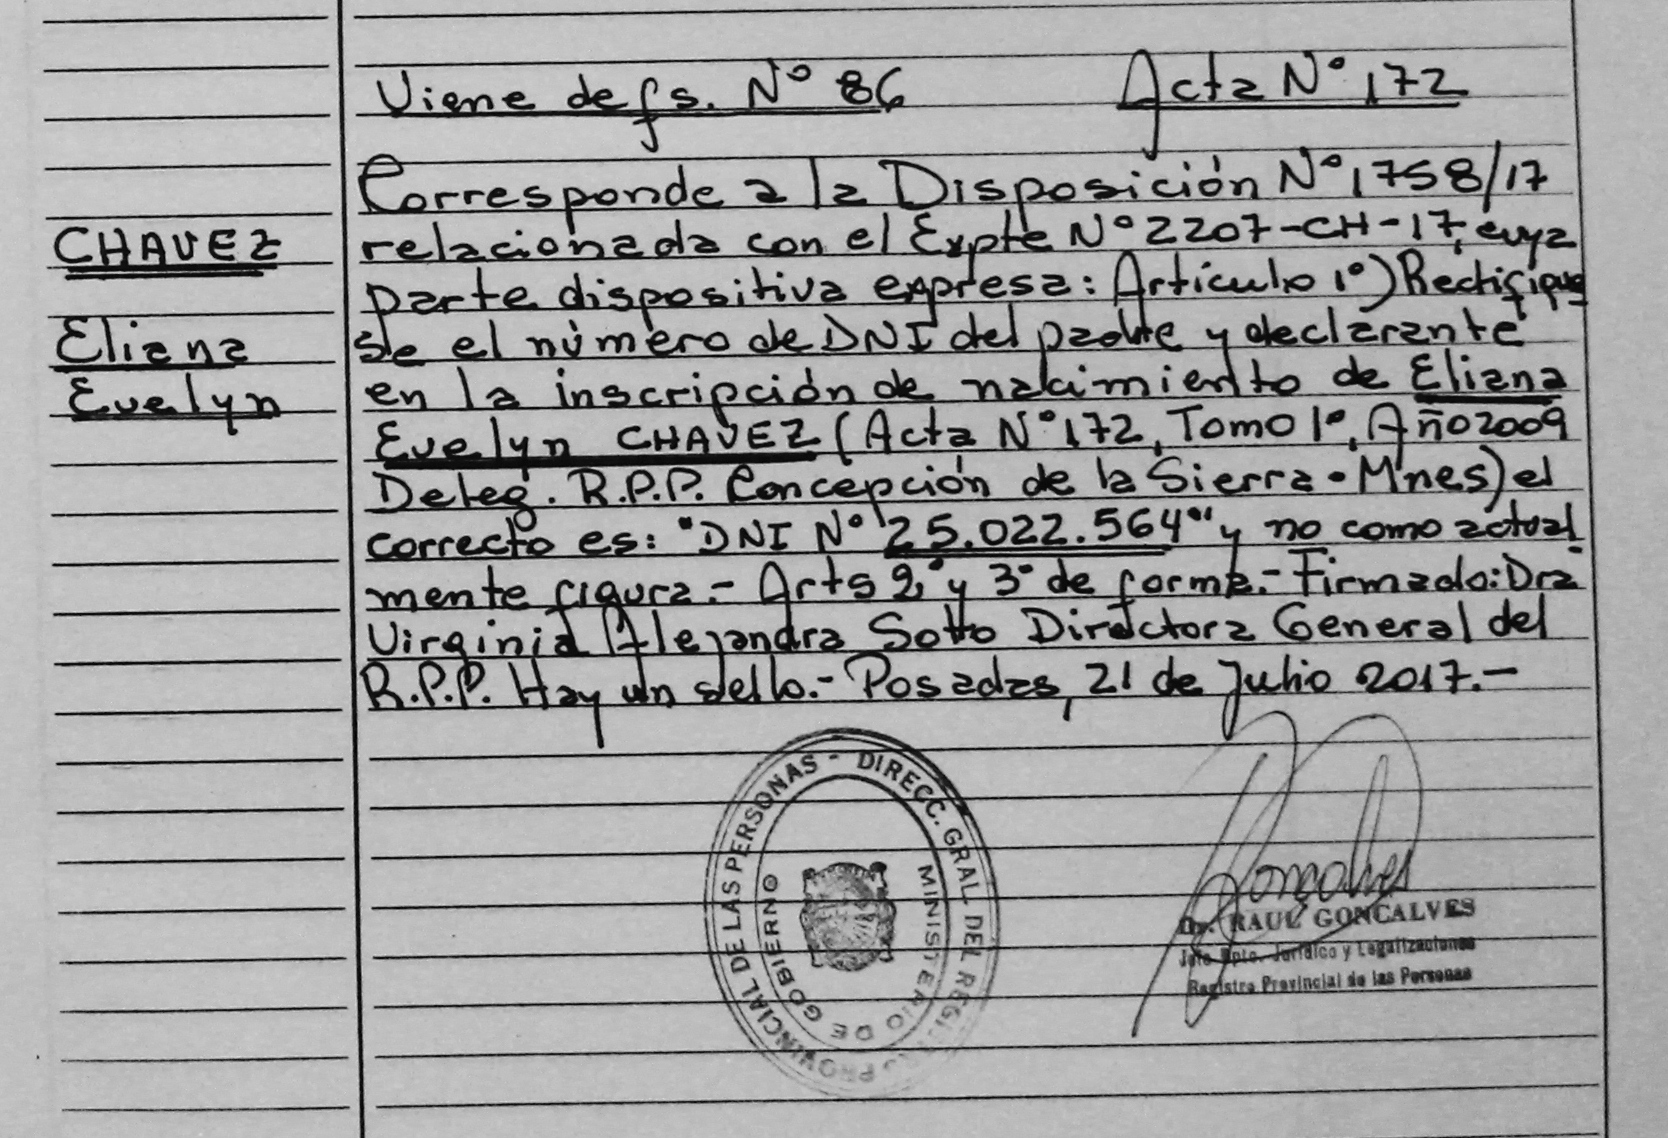 Viene de fs. Nº 86
Acta Nº 172
CHAVEZ
Eliana
Evelyn
Corresponde a la Disposición Nº 1758/17
relacionada con el Expte Nº 2207-CH-17, cuya
parte dispositiva expresa: Artículo 1º) Rectifique
se el número de DNI del padre y declarante
en la inscripción de nacimiento de Eliana
Evelyn CHAVEZ (Acta Nº 172, Tomo 1º, Año 2009
Deleg. R.P.P. Concepción de la Sierra - Mnes) el
correcto es: "DNI Nº 25.022.564" y no como actual
mente figura.- Arts 2º y 3º de forma.- Firmado: Dra
Virginia Alejandra Sotto Directora General del
R.P.P. Hay un sello.- Posadas, 21 de Julio 2017.-
DIRECC. GRAL. DEL REGISTRO PROVINCIAL DE LAS PERSONAS -
MINISTERIO DE GOBIERNO
Goncalves
Dr. RAUL GONCALVES
Jefe Dpto. Jurídico y Legalizaciones
Registro Provincial de las Personas